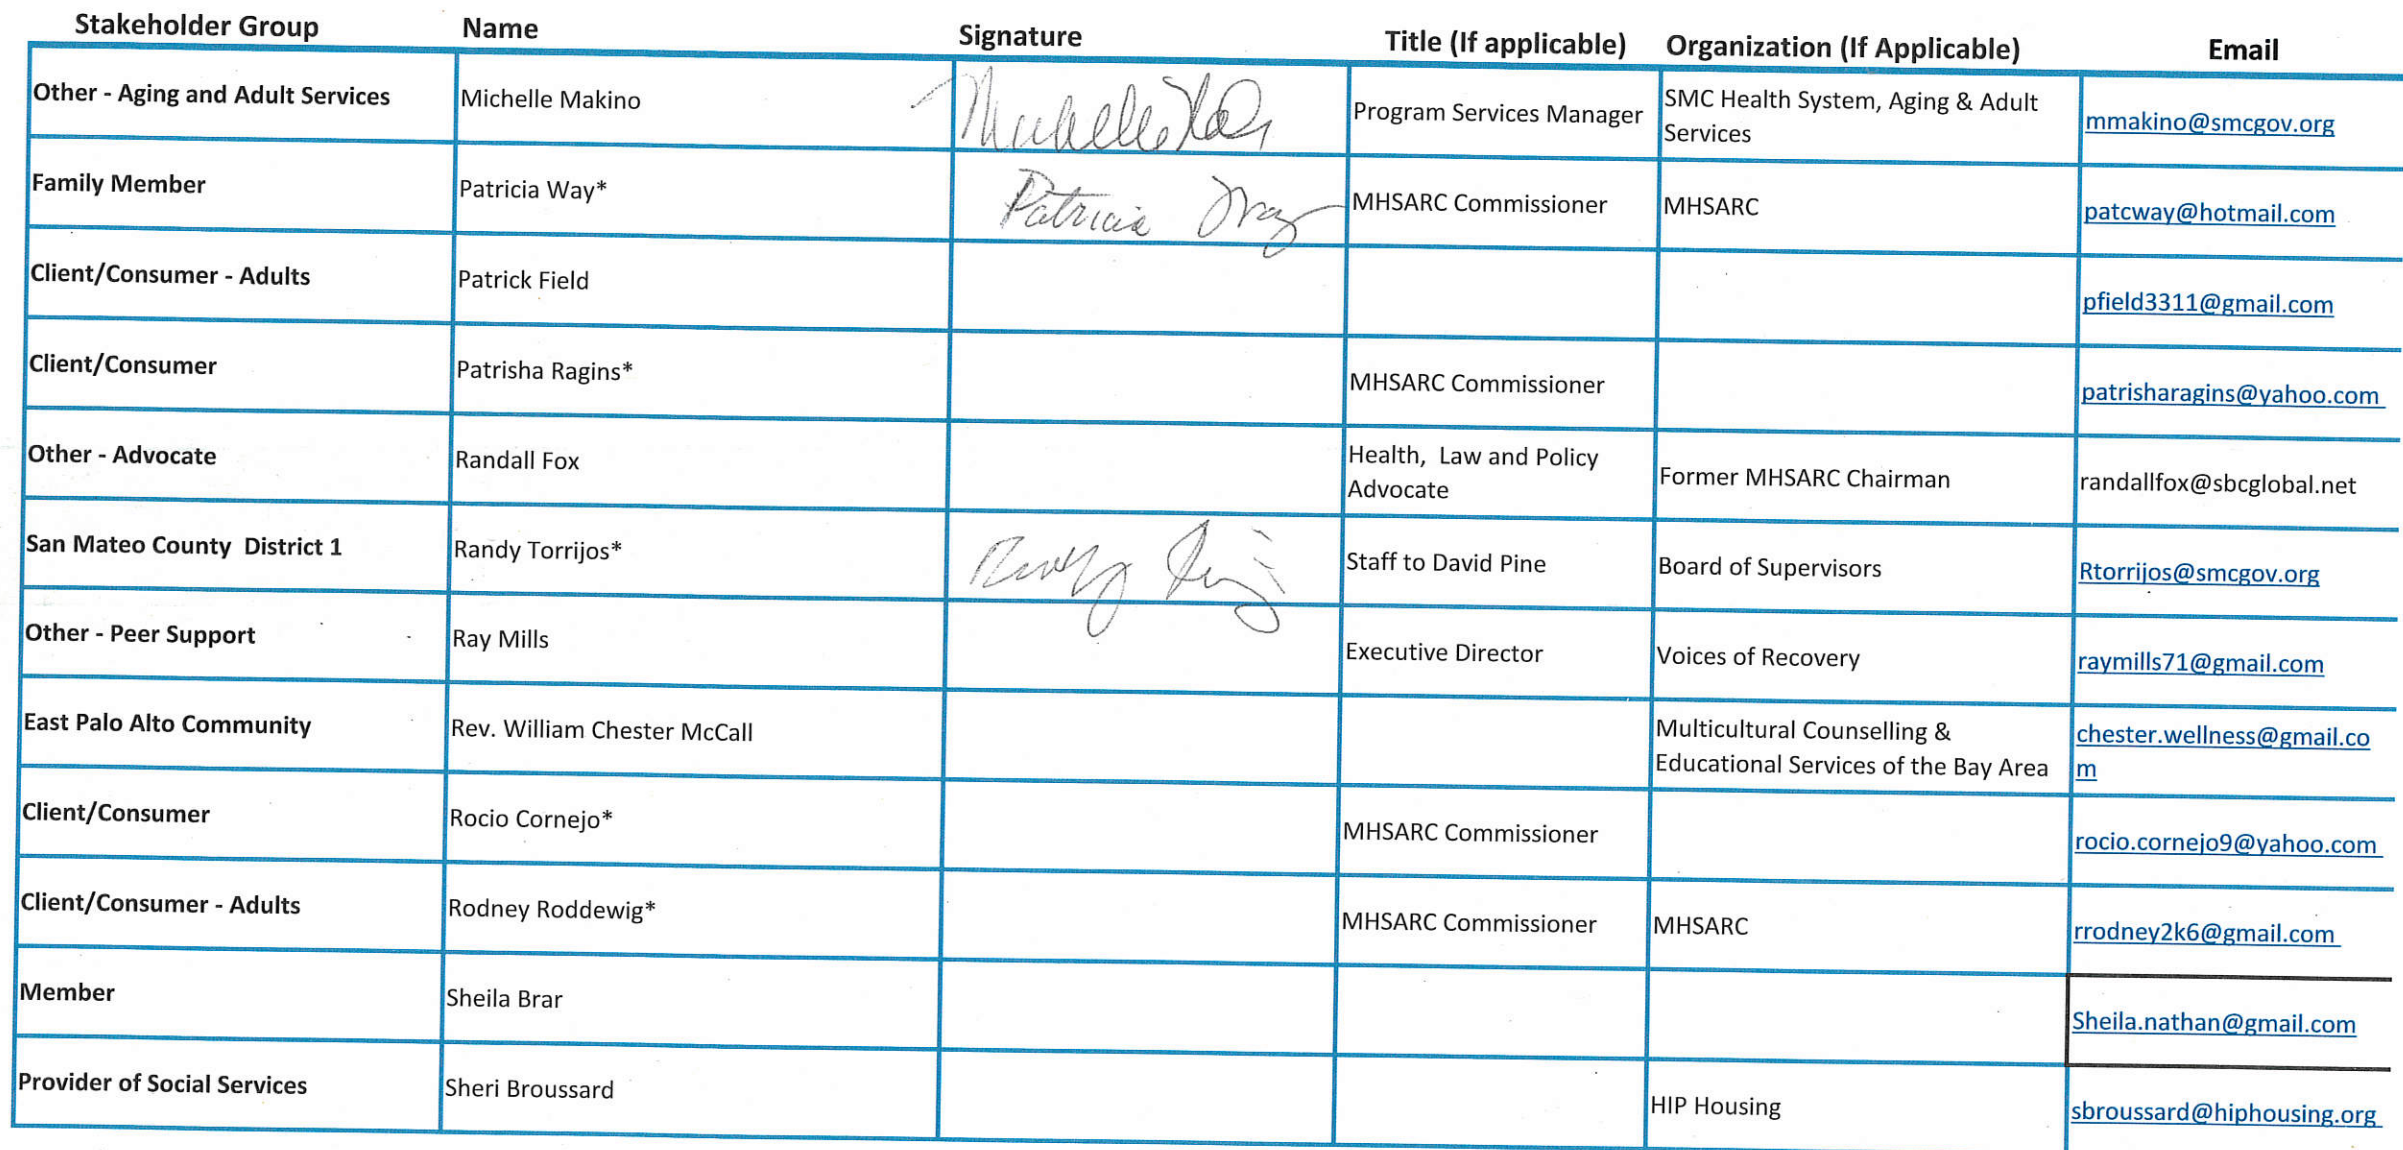 Stakeholder Group Name Signature Title (If applicable) Organization (If Applicable) Email
Other - Aging and Adult Services Michelle Makino Michelle Program Services Manager SMC Health System, Aging & Adult
Services mmakino@smcgov.org
Family Member Patricia Way* Patricia Way MHSARC Commissioner MHSARC patcway@hotmail.com
Client/Consumer - Adults Patrick Field pfield3311@gmail.com
Client/Consumer Patrisha Ragins* MHSARC Commissioner patrisharagins@yahoo.com
Other - Advocate Randall Fox Health, Law and Policy
Advocate Former MHSARC Chairman randallfox@sbcglobal.net
San Mateo County District 1 Randy Torrijos* Randy Staff to David Pine Board of Supervisors Rtorrijos@smcgov.org
Other - Peer Support Ray Mills Executive Director Voices of Recovery raymills71@gmail.com
East Palo Alto Community Rev. William Chester McCall Multicultural Counselling &
Educational Services of the Bay Area chester.wellness@gmail.co
m
Client/Consumer Rocio Cornejo* MHSARC Commissioner rocio.cornejo9@yahoo.com
Client/Consumer - Adults Rodney Roddewig* MHSARC Commissioner MHSARC rrodney2k6@gmail.com
Member Sheila Brar Sheila.nathan@gmail.com
Provider of Social Services Sheri Broussard HIP Housing sbroussard@hiphousing.org